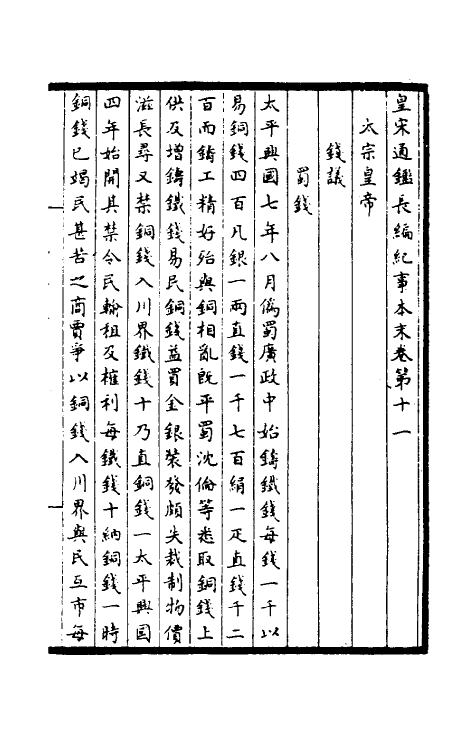 皇宋通鑑長編紀事本末卷第十一
太宗皇帝
錢議
蜀錢
太平興國七年八月僞蜀廣政中始鑄鐵錢每錢一千以
易銅錢四百凡銀一兩直錢一千七百絹一疋直錢千二
百而鑄工精好殆與銅相亂既平蜀沈倫等悉取銅錢上
供及增鑄鐵錢易民銅錢益買金銀裝發頗失裁制物價
滋長尋又禁銅錢入川界鐵錢十乃直銅錢一太平興國
四年始開其禁令民輸租及榷利每鐵錢十納銅錢一時
銅錢已竭民甚苦之商賈爭以銅錢入川界與民互市每